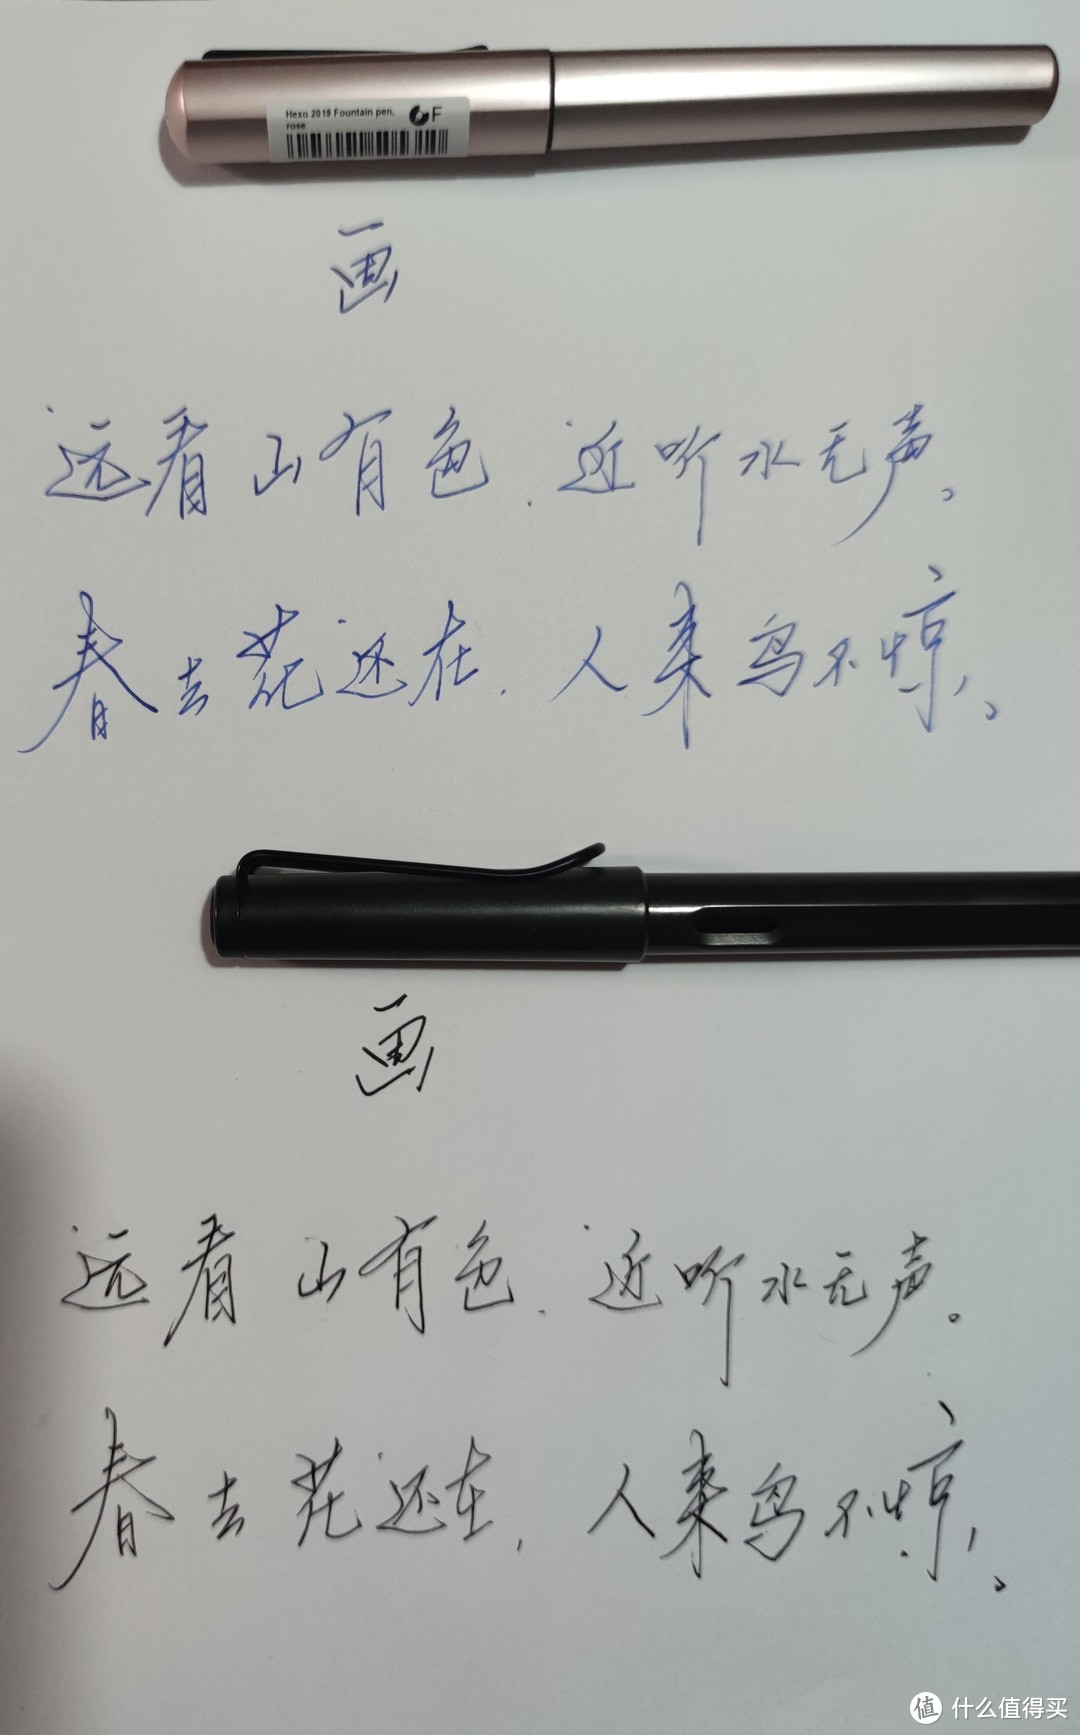 Hexo 2019 Fountain pen, F
rose
画
远看山有色,近听水无声。
春去花还在,人来鸟不惊。
画
远看山有色,近听水无声。
春去花还在,人来鸟不惊。
值 什么值得买